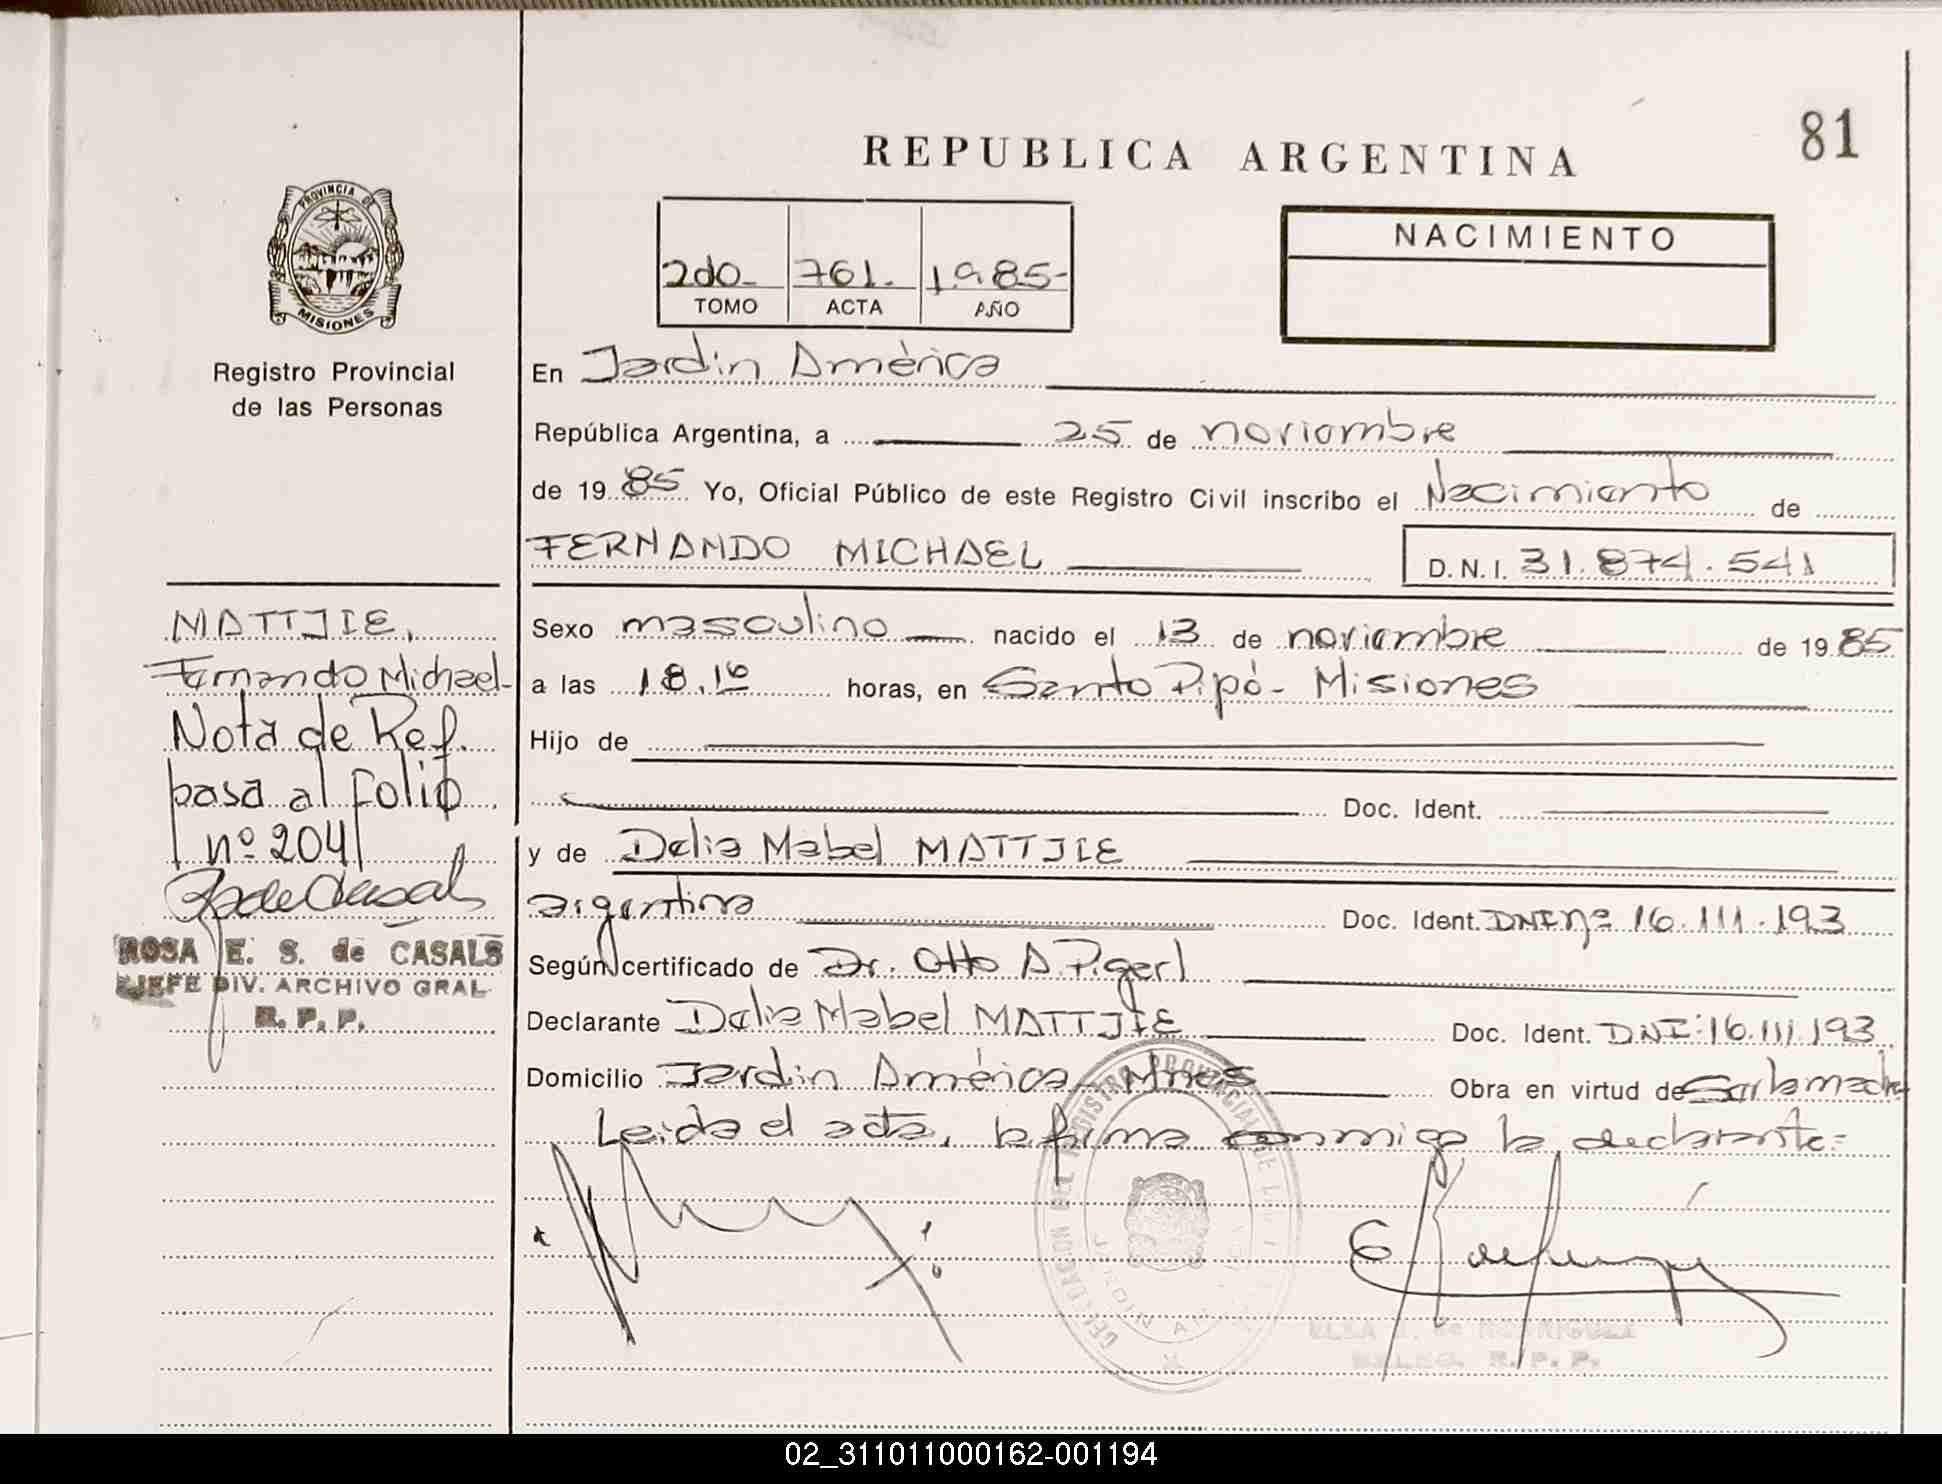 81
REPUBLICA ARGENTINA
PROVINCIA DE
MISIONES
Registro Provincial
de las Personas
2do- 761. 1985-
TOMO ACTA AÑO
NACIMIENTO
En Jardin América
República Argentina, a 25 de noviembre
de 1985 Yo, Oficial Público de este Registro Civil inscribo el Nacimiento de
FERNANDO MICHAEL D.N.I. 31.874.541
MATTJIE,
Fernando Michael-
Nota de Ref.
pasa al folio
nº 204
ROSA E. S. de CASALS
JEFE DIV. ARCHIVO GRAL.
R. P. P.
Sexo masculino nacido el 13 de noviembre de 1985
a las 18,10 horas, en Santo Pipó- Misiones
Hijo de
Doc. Ident.
y de Delia Mabel MATTJIE
argentina Doc. Ident. DNI nº 16.111.193
Según certificado de Dr. Otto A. Pigerl
Declarante Delia Mabel MATTJIE Doc. Ident. DNI: 16.111.193
Domicilio Jardin América- Mnes Obra en virtud de Ser la madre
Leida el acta, la firma conmigo la declarante=
DELEGACION DEL REGISTRO PROVINCIAL DE LAS
JARDIN A
ELSA de RODRIGUEZ
DELEG. R. P. P.
02_311011000162-001194